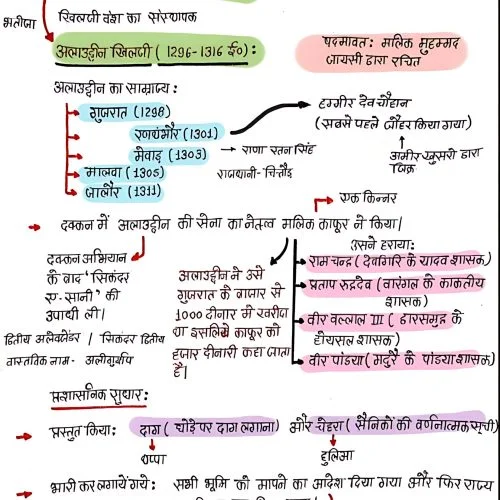 भतीजा
खिलजी वंश का संस्थापक
अलाउद्दीन खिलजी (1296-1316 ई०):
पदमावत: मलिक मुहम्मद
जायसी द्वारा रचित
अलाउद्दीन का साम्राज्य:
गुजरात (1298)
रणथंभौर (1301)
मेवाड़ (1303)
मालवा (1305)
जालौर (1311)
राणा रतन सिंह
राजधानी-चित्तौड़
हम्मीर देव चौहान
(सबसे पहले जौहर किया गया)
अमीर खुसरो द्वारा
जिक्र
एक किन्नर
दक्कन में अलाउद्दीन की सेना का नेतृत्व मलिक काफूर ने किया।
दक्कन अभियान
के बाद 'सिकंदर
ए-सानी' की
उपाधी ली।
द्वितीय अलेक्जेंडर / सिकंदर द्वितीय
वास्तविक नाम- अलीगुर्शप
अलाउद्दीन ने उसे
गुजरात के बाजार से
1000 दीनार में खरीदा
था इसलिये काफूर को
हजार दीनारी कहा जाता
है।
उसने हराया:
राम चन्द्र (देवगिरि के यादव शासक)
प्रताप रुद्रदेव (वारंगल के काकतीय
शासक)
वीर वल्लाल III (द्वारसमुद्र के
होयसल शासक)
वीर पांडया (मदुरै के पांडया शासक)
प्रशासनिक सुधार:
प्रस्तुत किया: दाग (घोड़े पर दाग लगाना) और चेहरा (सैनिकों की वर्णनात्मक सूची)
ठप्पा
हुलिआ
भारी कर लगाये गये: सभी भूमि को मापने का आदेश दिया गया और फिर राज्य